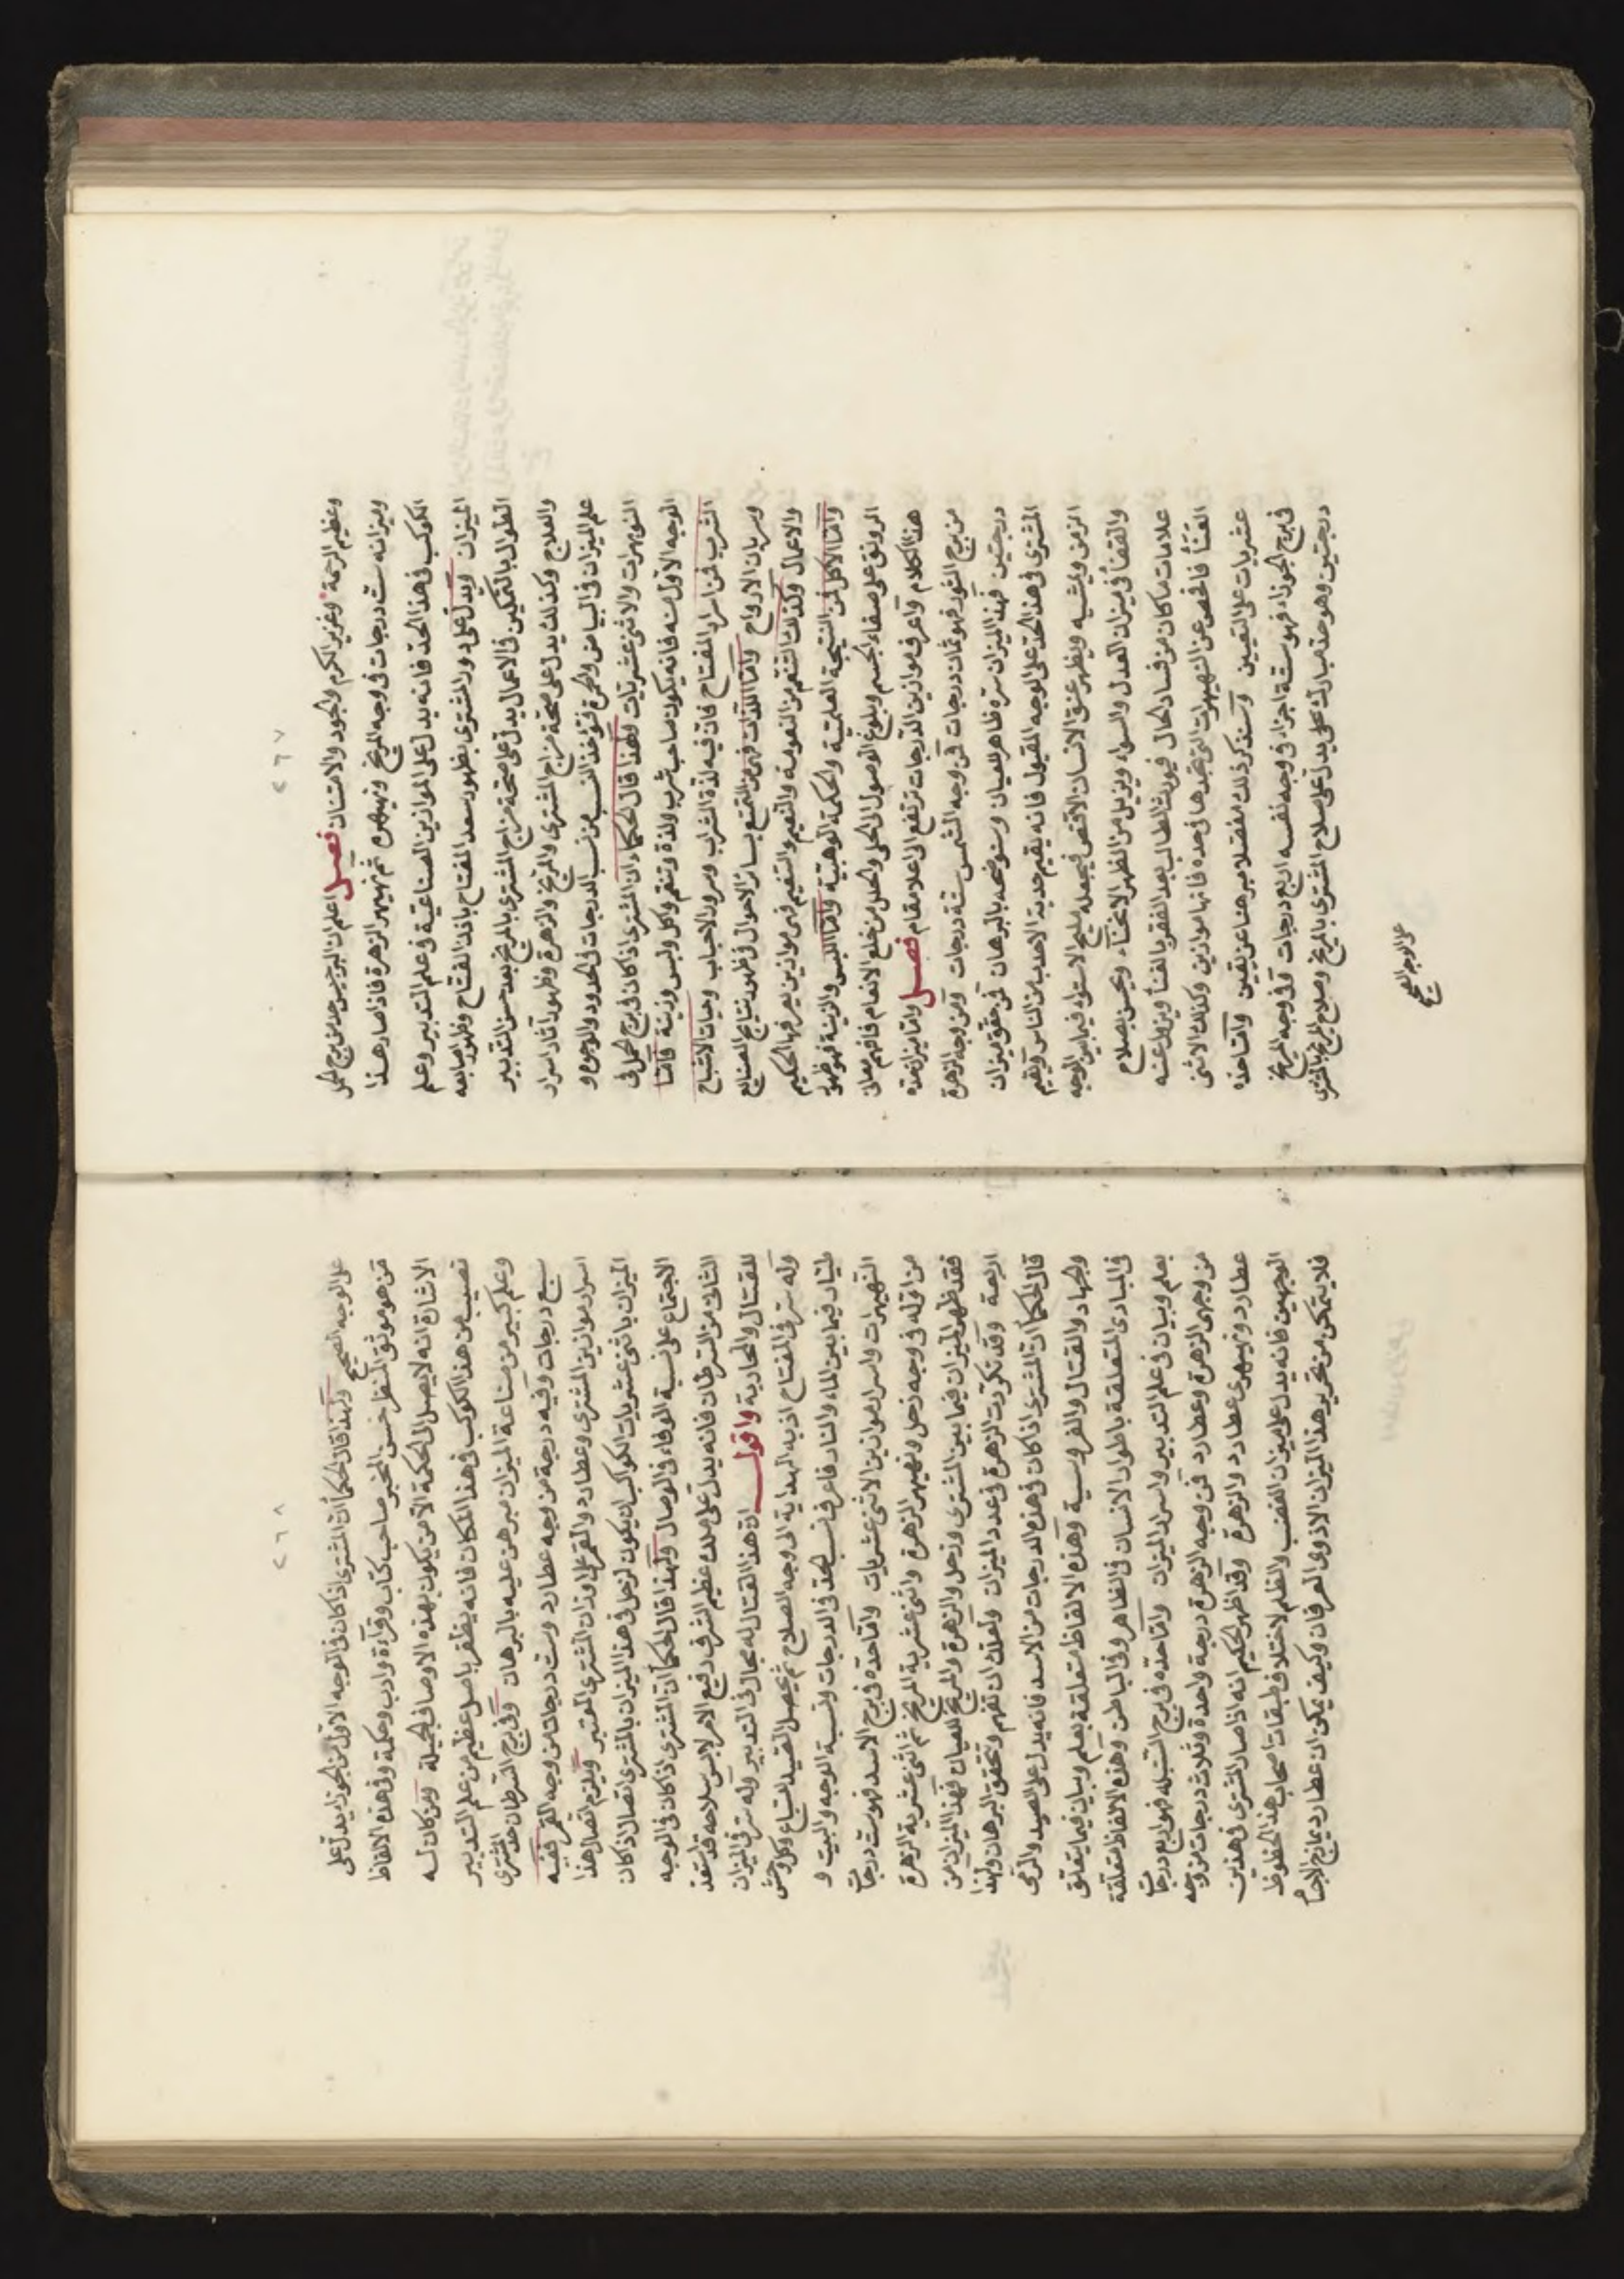 ٢٦٧
وعظيم الرحمة وعزيز الكرم والجود والامتنان فصل اعلم ان البرجيس حد من برج الحمل
وميزانه ست درجات في وجه المريخ ونهيهرة ثم نهيهر الزهرة فاذا صار هذا
الكوكب في هذا الحد فانه يدل على الموازين الصناعية في علم التدبير وعلم
الميزان ويدل على دور المشتري بظهور سعد المفتاح باخذ المفتاح وظهور اصابعه
الطوال بالتمكين في الاعمال يدل على صحة مزاج المشتري بالمريخ بعد حسن التدبير
والعلاج وكذلك يدل على صحة مزاج المشتري والمريخ والزهرة وظهور آثار اسرار
علم الميزان في البياض والحمرة فتؤخذ النسب من نسب الدرجات في الحدود والوجوه و
النوبهرات والاثنى عشريات ولهذا قال الحكماء ان المشتري اذا كان في برج الحمل في
الوجه الاول منه فانه يكون صاحب شرب ولذة وتنعم واكل ولبس وزينة فاما
الشرب فمن اسرار المفتاح فان فيه لذة الشراب وسرور الاحباب وحيات الاشباح
وسريان الارواح واما اللذات فهي من التمتع بسائر الاحوال في ظهور نتايج الصنايع
والاعمال وكذلك التنعم من النعومة والنعيم والتنعيم فهي موازين يعرفها الحكيم
واما الاكل فمن النتيجة العلمية والحكمة الوهبية واما اللبس والزينة فهو ظهور
الرونق على صفاء الجسم وبلوغ الوصول الى الحلي والحلل من خلع الانعام فافهم معاني
هذا الكلام واعرف موازين الدرجات ترتفع الى اعلا مقام فصل واما ميزانه
من برج الثور فهو ثمان درجات في وجه الشمس ستة درجات ومن وجه الزهرة
درجتين فهذا الميزان سره ظاهر للعيان وسنوضحه بالبرهان لمن حقق ميزان
المشتري في هذا الحد على الوجه المقبول فانه يقيم حدبة الاحدب من الناس ويقيم
الزمن ويمشيه ويظهر عنق الانسان الاقعص فيجعله مليح الاستواء فيما بين الوجه
والقفا في ميزان العدل والسواء ويزيل من الظهر الانحناء ويحسن بصلاح
علامات ما كان من فساد الحال فيورث الطالب بعد الفقر بالغنا ويزول عنه
العنا فافحص عن النهيهرات التي تجدها في حده فانها موازين وكذلك الاثنى
عشريات على التعيين وسنذكر ذلك مفصلا مبرهنا عن يقين واما حده
في برج الجوزاء فهو ستة اجزاء في وجه نفسه اربع درجات وفي وجه المريخ
درجتين وهو حد مبارك محلي يدل على صلاح المشتري بالمريخ وصلاح المريخ بالمشتري
على الوجه الصحيح
٢٦٨
على الوجه الصحيح ولهذا قال الحكماء ان المشتري اذا كان في الوجه الاول من الجوزاء يدل على
من هو موثق المنظر حسن المخبر صاحب كتاب وقرآءة وادب وحكمة وفي هذه الالفاظ
الاشارة انه لا يصل الى الحكمة الا من يكون بهذه الاوصاف الجميلة ومن كان له
نصيب من هذا الكوكب في هذا المكان فانه يظفر باصل عظيم من علم التدبير
وعلم كبير من صناعة الميزان مبرهن عليه بالبرهان وفي برج السرطان حد المشتري
سبع درجات وفيه درجة من وجه عطارد وست درجات من وجه القمر ففيه
اسرار موازين المشتري وعطارد والقمر على اوزان المشتري المعتبر ويلزم اتصال هذا
الميزان باثنى عشريات الكواكب ان يكون لزحل في هذا الميزان بالمشتري اتصال اذا كان
الاجتماع على نسبة الوفاء في الوصال ولهذا قال الحكماء ان المشتري اذا كان في الوجه
الثاني من السرطان فانه يدل على ملك عظيم الشرف رفيع الامر لابس سلاحه قد استعد
للقتال والمحاربة واقول ان هذا القتال له مجال في التدبير وله سر في الميزان
وله سر في المفتاح اذ به الهداية الى وجه الصلاح ثم يحصل الصيد السباع وكل وحش
طيار فيما بين الماء والنار فاعرف نسب الحد في الدرجات ونسبة الوجه والبيت و
النهيهرات واسرار موازين الاثنى عشريات واما حده في برج الاسد فهو ست درجات
من اوله في وجه زحل ونهيهر الزهرة واثنى عشرية المريخ ثم اثنى عشرية الزهرة
فقد ظهر الميزان فيما بين المشتري وزحل والزهرة والمريخ للعيان فهذا الميزان من
اربعة وقد تكررت الزهرة في عدد الميزان ولعلك ان تفهم وتحقق البرهان ولهذا
قال الحكماء ان المشتري اذا كان في هذه الدرجات من الاسد فانه يدل على الصيد والرمي
والجهاد والقتال والفروسية وهذه الالفاظ متعلقة بعلم وبيان فيما يتعلق
في المبادي المتعلقة باطوار الانسان في الظاهر وفي الباطن وهذه الالفاظ متعلقة
بعلم وبيان في علم التدبير واسرار الميزان واما حده في برج السنبلة فهو اربع درجات
من وجهي الزهرة وعطارد فمن وجه الزهرة درجة واحدة وثلاث درجات من وجه
عطارد ونهيهري عطارد والزهرة وقد اظهر الحكيم انه اذا صار المشتري في هذين
الوجهين فانه يدل على ميزان الغضب والظلم لاختلاف طبقات اصحاب هذا الحظوظ
فلا يتمكن من تحرير هذا الميزان الا ذوي العرفان وكيف يمكن ان عطارد يمازج الاجسام